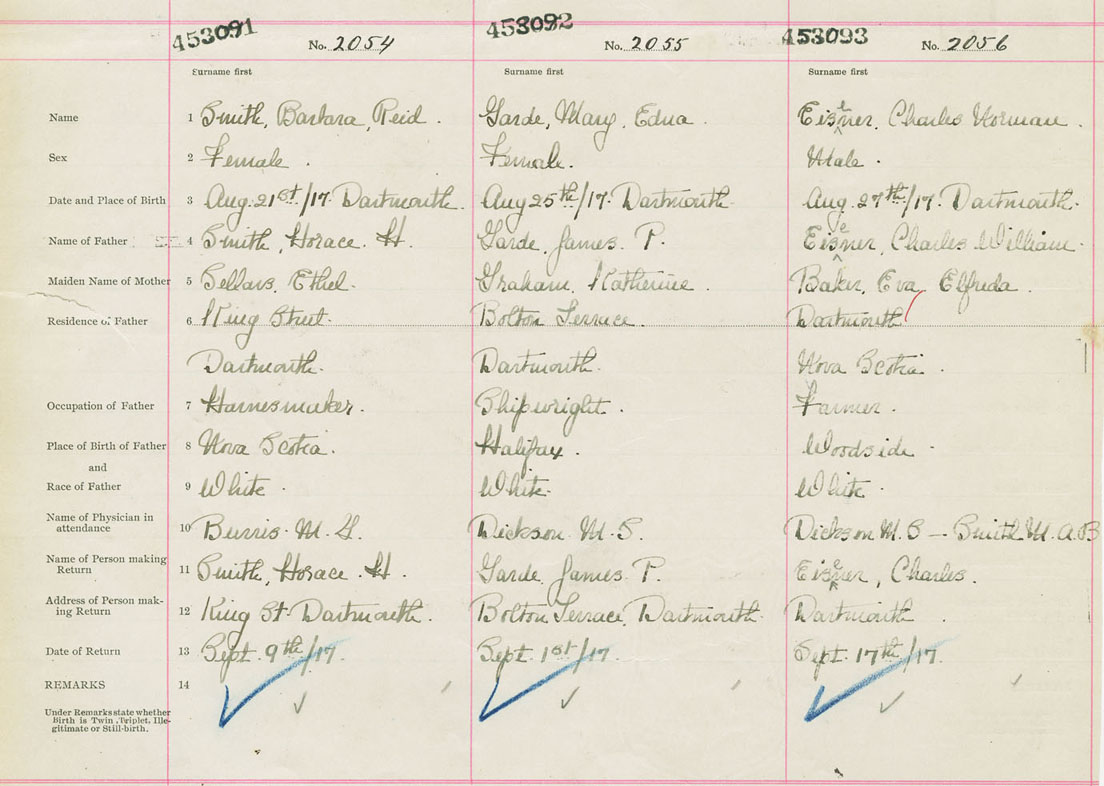 453091 No. 2054 453092 No. 2055 453093 No. 2056
Surname first Surname first Surname first
Name 1 Smith, Barbara, Reid. Garde, Mary, Edna. Eisener, Charles Norman.
Sex 2 Female. Female. Male.
Date and Place of Birth 3 Aug. 21st/17. Dartmouth. Aug 25th/17. Dartmouth. Aug. 27th/17. Dartmouth.
Name of Father 4 Smith, Horace. H. Garde, James. P. Eisener, Charles William.
Maiden Name of Mother 5 Sellars, Ethel. Graham, Katherine. Baker, Eva Elfreda.
Residence of Father 6 King Street. Bolton Terrace. Dartmouth
Dartmouth. Dartmouth. Nova Scotia.
Occupation of Father 7 Harnesmaker. Shipwright. Farmer.
Place of Birth of Father 8 Nova Scotia. Halifax. Woodside.
and
Race of Father 9 White. White. White.
Name of Physician in
attendance 10 Burris. M. G. Dickson. M. S. Dickson M. S - Smith M. A. B
Name of Person making
Return 11 Smith, Horace. H. Garde, James. P. Eisener, Charles.
Address of Person mak-
ing Return 12 King St. Dartmouth. Bolton Terrace, Dartmouth. Dartmouth.
Date of Return 13 Sept. 9th/17. Sept. 1st/17. Sept. 17th/17.
REMARKS 14
Under Remarks state whether
Birth is Twin, Triplet, Ille-
gitimate or Still-birth.